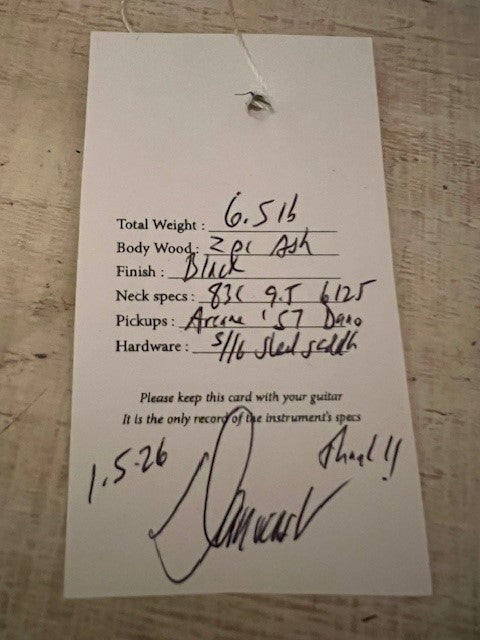 Total Weight : 6.5 lb
Body Wood : 2 pc Ash
Finish : Black
Neck specs : 83C 9.5 6125
Pickups : Arcane '57 Dano
Hardware : 5/16 steel saddle
Please keep this card with your guitar
It is the only record of the instrument's specs
1.5.26